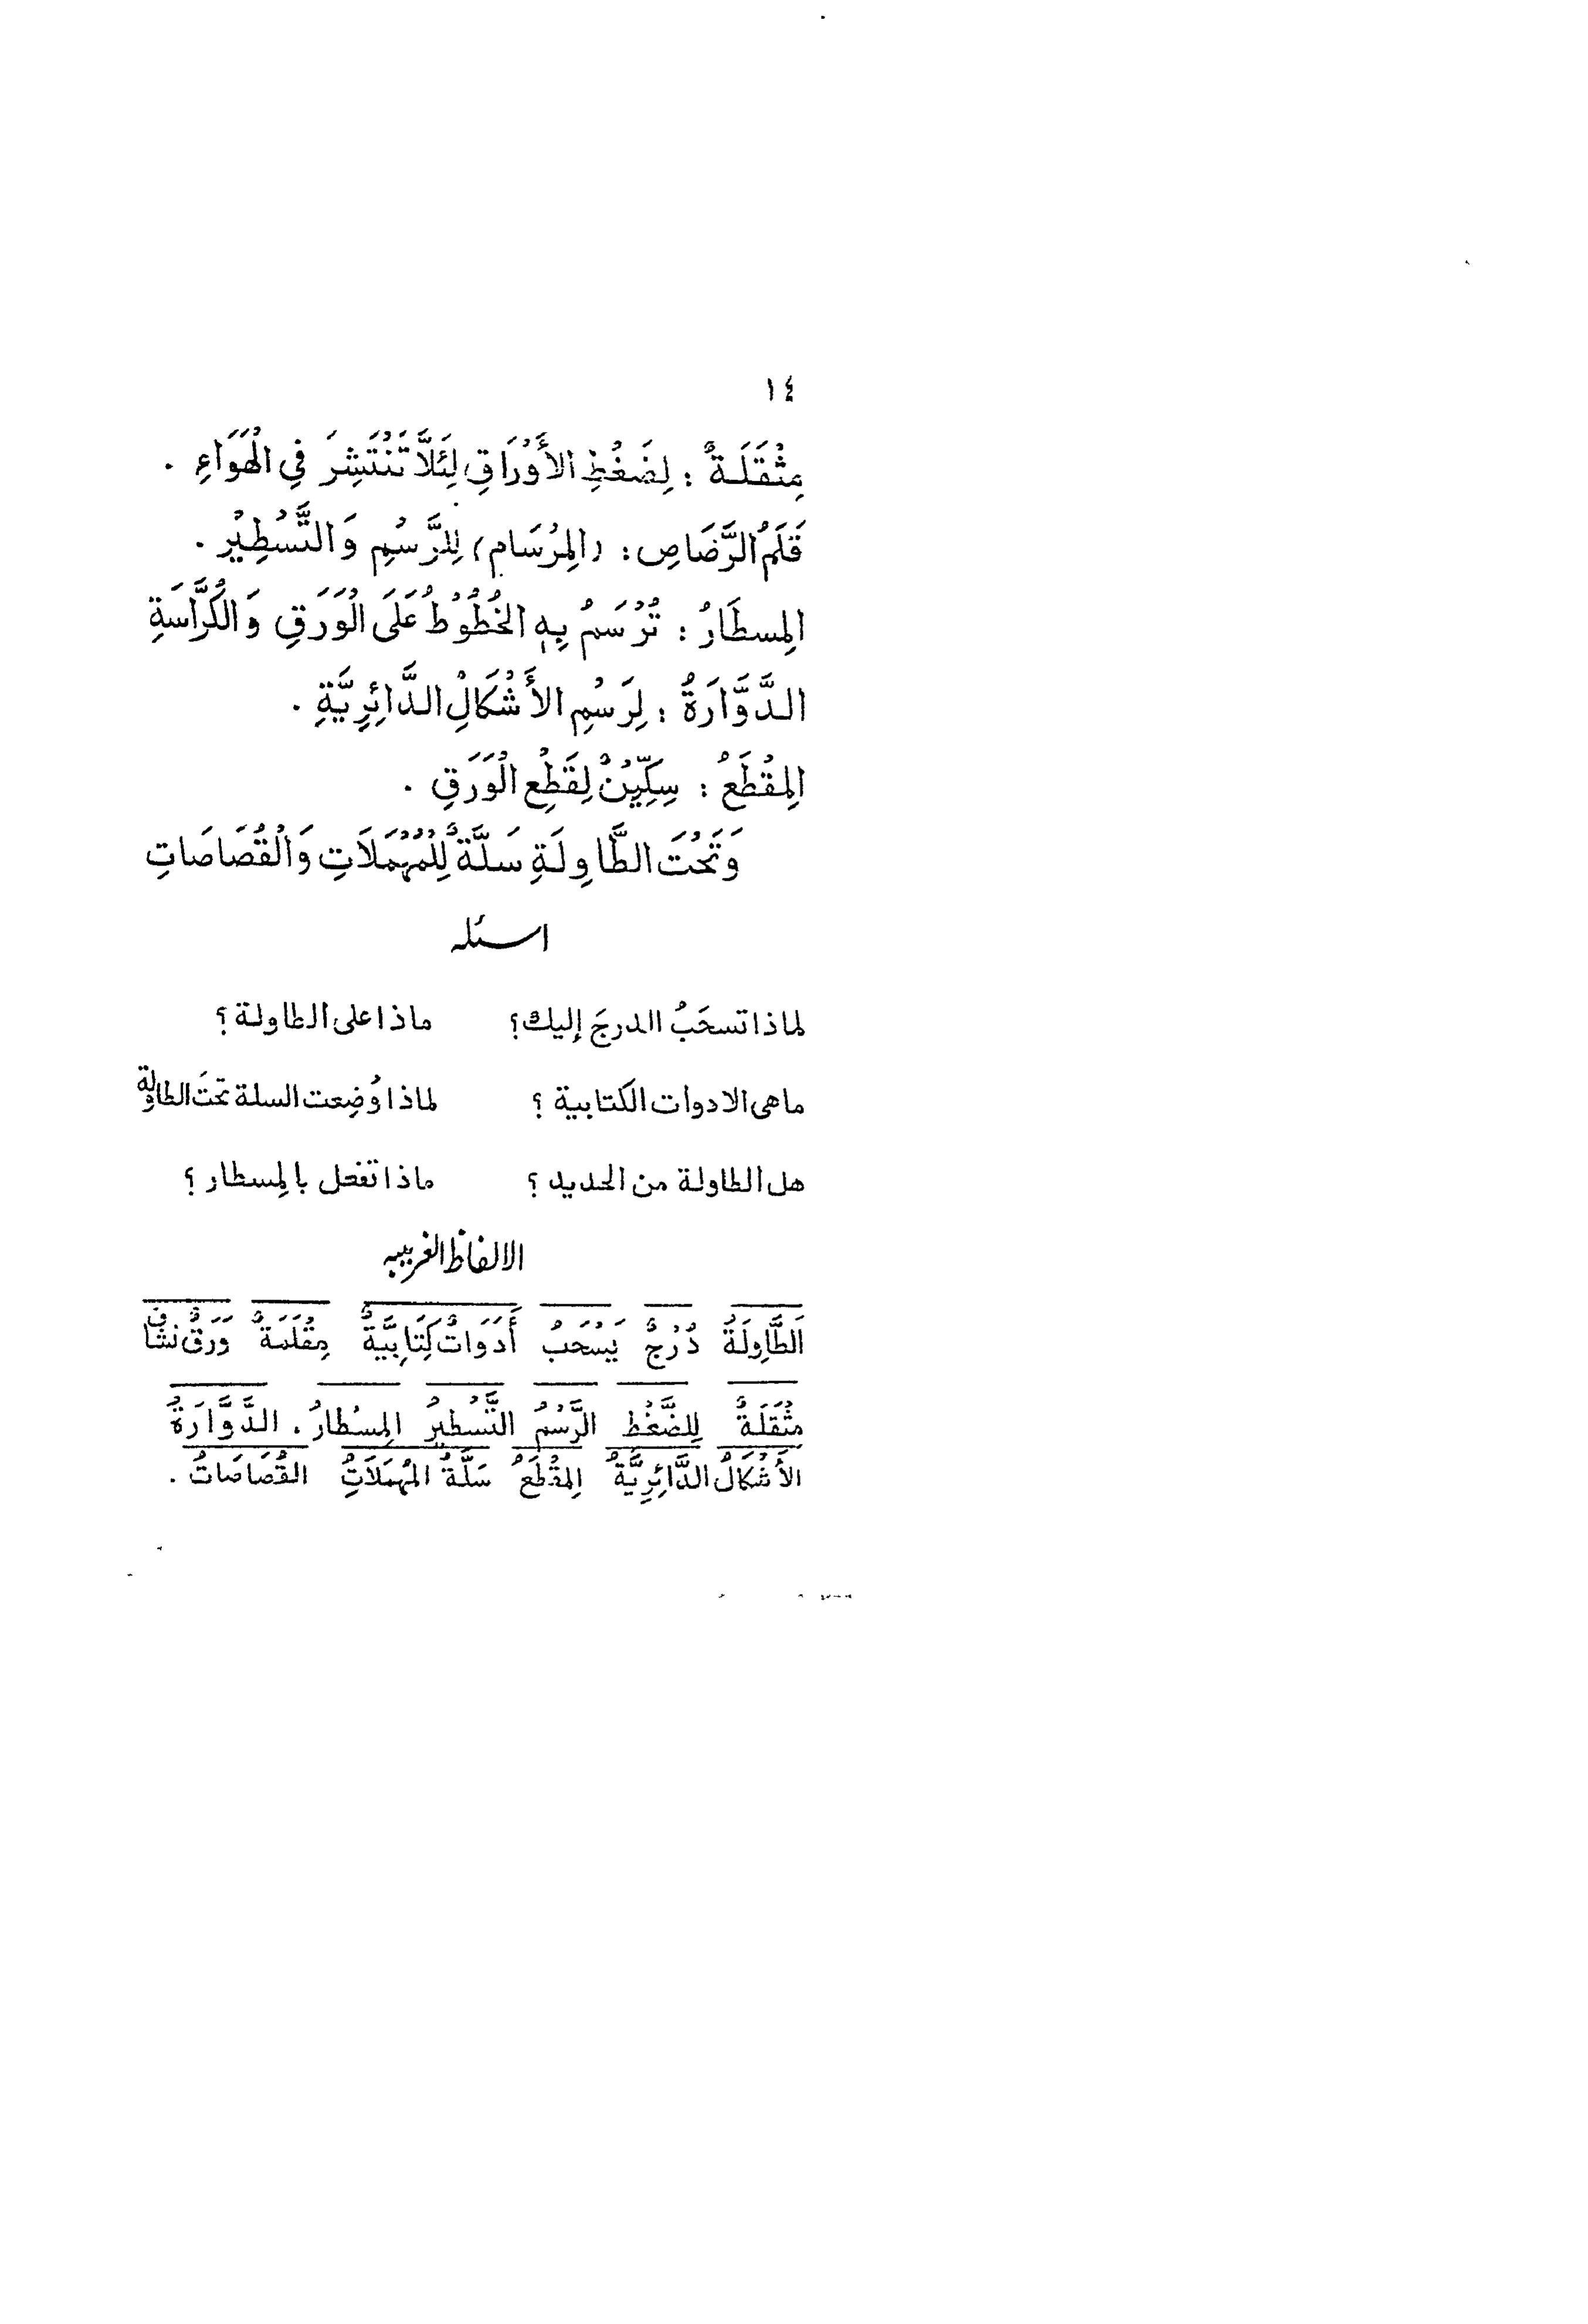 ١٤
مِثْقَلَةٌ : لِضَغْطِ الأَوْرَاقِ لِئَلَّا تَنْتَشِرَ فِي الْهَوَاءِ .
قَلَمُ الرَّصَاصِ : (المِرْسَام) لِلرَّسْمِ وَالتَّسْطِيْرِ .
المِسطَارُ : تُرْسَمُ بِهِ الخُطُوْطُ عَلَى الْوَرَقِ وَالْكُرَّاسَةِ
الدَّوَّارَةُ : لِرَسْمِ الأَشْكَالِ الدَّائِرِيَّةِ .
المِقْطَعُ : سِكِّيْنٌ لِقَطْعِ الْوَرَقِ .
وَتَحْتَ الطَّاوِلَةِ سَلَّةٌ لِلْمُهْمَلَاتِ وَالْقُصَاصَاتِ
اسئله
لماذا تسحَبُ الدرجَ إليك؟ ماذا على الطاولة ؟
ماهى الادوات الكتابية ؟ لماذا وُضِعت السلة تحتَ الطاولة
هل الطاولة من الحديد ؟ ماذا تفعل بالمِسطار ؟
الالفاظ الغريبه
الطَّاوِلَةُ دُرْجٌ يَسْحَبُ أَدَوَاتٌ كِتَابِيَّةٌ مِقْلَمَةٌ وَرَقٌ نشاف
مِثْقَلَةٌ لِلضَّغْطِ الرَّسْمُ التَّسْطِيرُ المِسْطارُ . الدَّوَّارَةُ
الأَشْكَالُ الدَّائِرِيَّةُ المِقْطَعُ سَلَّةُ المُهْمَلَاتِ القُصَاصَاتُ .